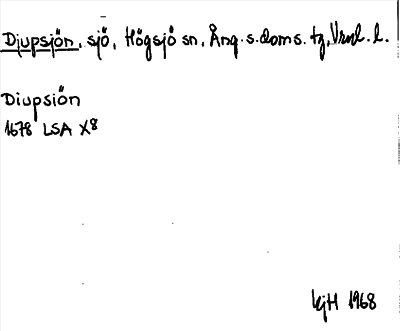 Djupsjön, sjö, Högsjö sn, Ång. s. doms. tg, Vrnl. l.
Diupsiön
1678 LSA X8
KjH 1968